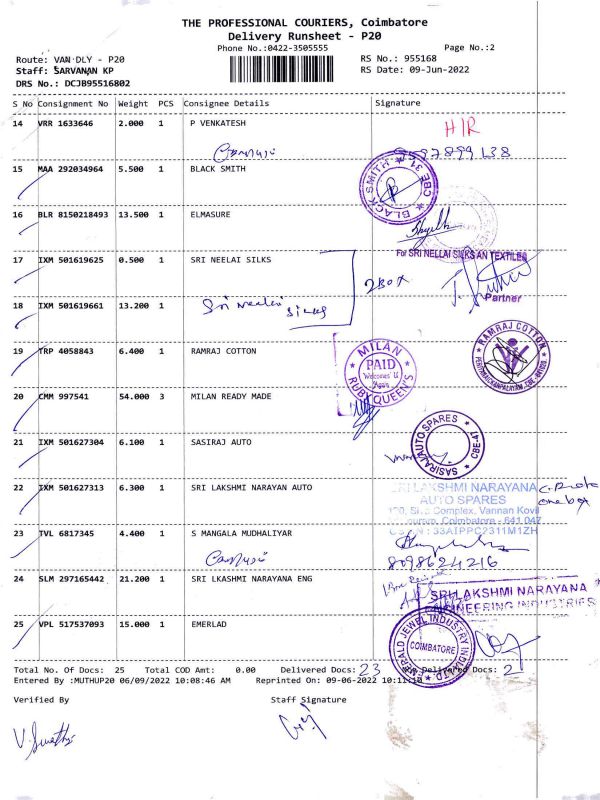 THE PROFESSIONAL COURIERS, Coimbatore
Delivery Runsheet - P20
Phone No.:0422-3505555 Page No.:2
Route: VAN DLY - P20 RS No.: 955168
Staff: SARVANAN KP RS Date: 09-Jun-2022
DRS No.: DCJB95516802
S No Consignment No Weight PCS Consignee Details Signature
14 VRR 1633646 2.000 1 P VENKATESH
H/R
15 MAA 292034964 5.500 1 BLACK SMITH
BLACK SMITH CBE 31
16 BLR 8150218493 13.500 1 ELMASURE
17 IXM 501619625 0.500 1 SRI NEELAI SILKS
For SRI NELLAI SILKS AN TEXTILES
2 Box
Partner
18 IXM 501619661 13.200 1
Sri Neelai Silks
19 TRP 4058843 6.400 1 RAMRAJ COTTON
MILAN PAID Welcomes U Again RUBY QUEEN'S
RAMRAJ COTTON
20 CMM 997541 54.000 3 MILAN READY MADE
21 IXM 501627304 6.100 1 SASIRAJ AUTO
SASIRAJ AUTO SPARES CBE-41
22 IXM 501627313 6.300 1 SRI LAKSHMI NARAYAN AUTO
SRI LAKSHMI NARAYANA
AUTO SPARES
Complex, Vannan Kovil
Coimbatore - 641 047
33AIPPC2311M1ZH
one box
23 TVL 6817345 4.400 1 S MANGALA MUDHALIYAR
8098624216
24 SLM 297165442 21.200 1 SRI LKASHMI NARAYANA ENG
SRI LAKSHMI NARAYANA
ENGINEERING INDUSTRIES
25 VPL 517537093 15.000 1 EMERLAD
EMERALD JEWEL INDUSTRY INDIA LTD COIMBATORE
Total No. Of Docs: 25 Total COD Amt: 0.00 Delivered Docs: 23 Docs: 2
Entered By :MUTHUP20 06/09/2022 10:08:46 AM Reprinted On: 09-06-2022 10:11:10
Verified By Staff Signature